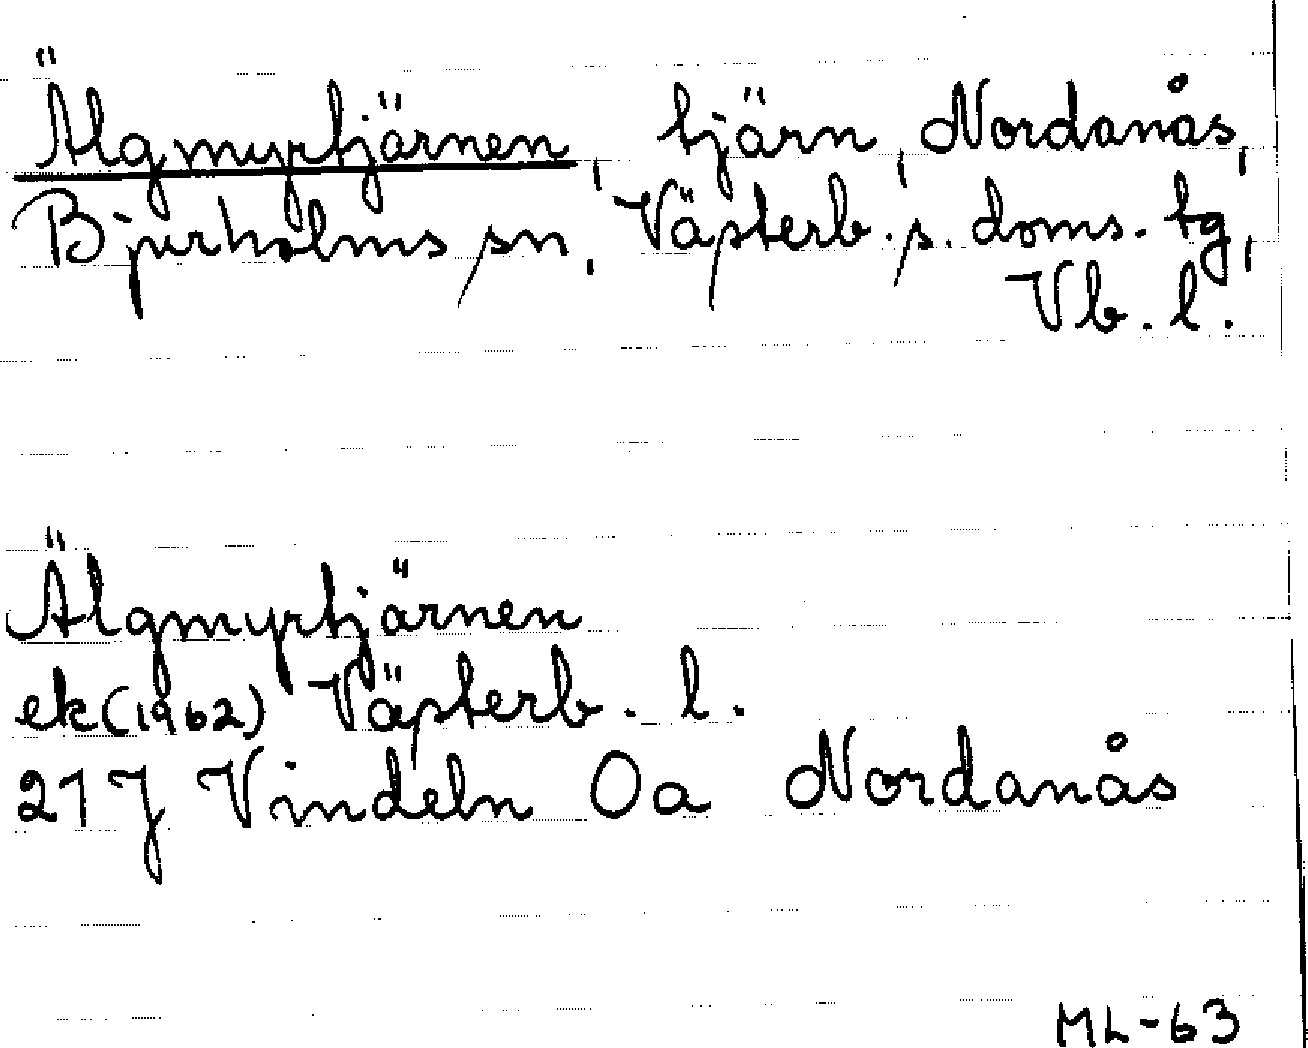 Älgmyrtjärnen, tjärn, Nordanås,
Bjurholms sn, Västerb. s. doms. tg,
Vb. l.
Älgmyrtjärnen
ek(1962) Västerb. l.
21J Vindeln 0a Nordanås
ML-63